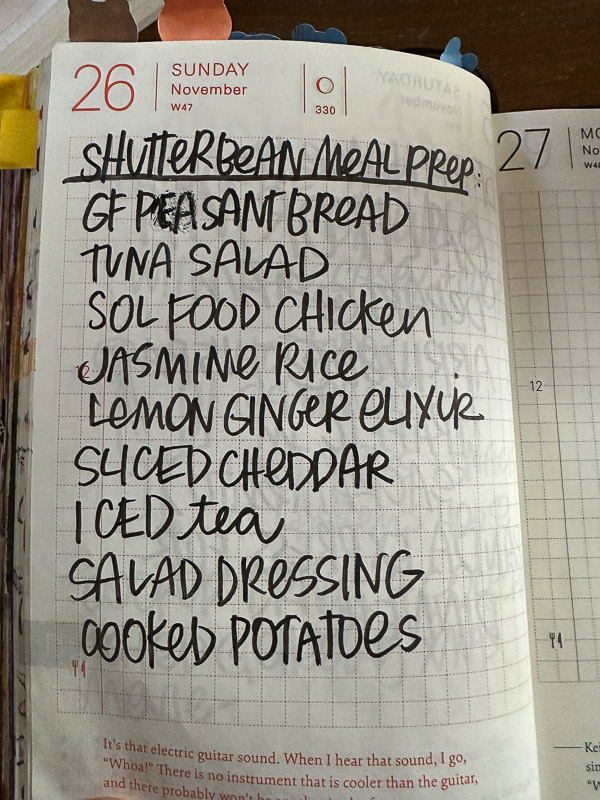 26 SUNDAY
November
W47
330
SATURDAY
November
27 MO
No
W48
SHUTTERBEAN MEAL PREP:
GF PEASANT BREAD
TUNA SALAD
SOL FOOD CHICKEN
JASMINE RICE
12
LEMON GINGER ELIXIR
SLICED CHEDDAR
ICED tea
SALAD DRESSING
COOKED POTATOES
It's that electric guitar sound. When I hear that sound, I go,
"Whoa!" There is no instrument that is cooler than the guitar,
and there probably won't be
Kei
sin
"W